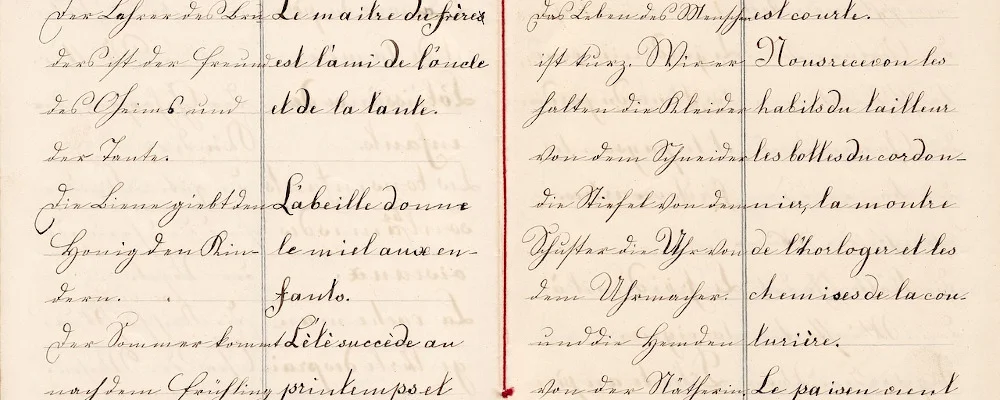 Der Lehrer des Bru
ders ist der Freund
des Oheims und
der Tante.
Die Biene giebt den
Honig den Kin-
dern.
Der Sommer kommt
nach dem Frühling
Le maitre du frères
est l'ami de l'oncle
et de la tante.
L'abeille donne
le miel aux en-
fants.
L'été succède au
printemps et
Das Leben des Menschen
ist kurz. Wir er
halten die Kleider
von dem Schneider
die Stiefel von dem
Schuster die Uhr von
dem Uhrmacher.
und die Hemden
von der Nätherin
est courte.
Nous recevon les
habits du tailleur
les bottes du cordon-
nier, la montre
de l'horloger et les
chemises de la cou-
turière.
Le paisen